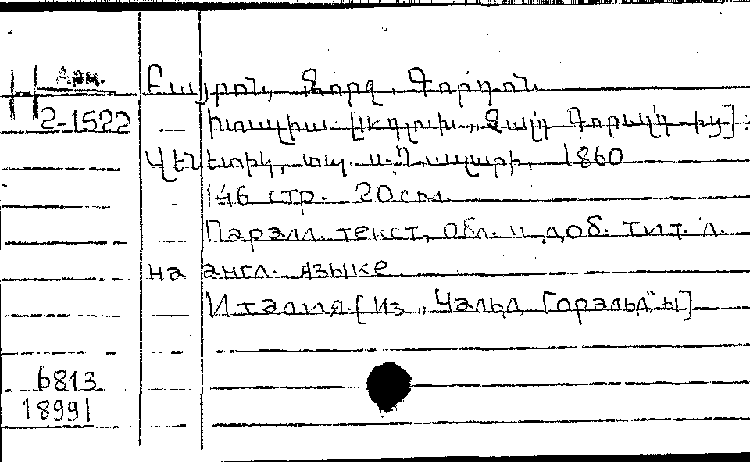 Арм.
Н 2-1522
Բայրոն, Ջորջ, Գորդոն
Իտալիա
Վենետիկ, տպ. ս. Ղազարի, 1860
146 стр. 20см
Паралл. текст, обл. и доб. тит. л.
на англ. языке
Италия [Из „Чальд Гаральд"ы]
6813
18991